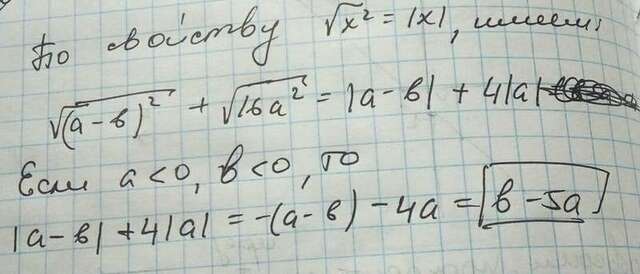 По свойству √x² = |x|, имеем:
√(a-в)² + √16a² = |a-в| + 4|a|
Если a<0, в<0, то
|a-в| + 4|a| = -(a-в) - 4a = в-5a